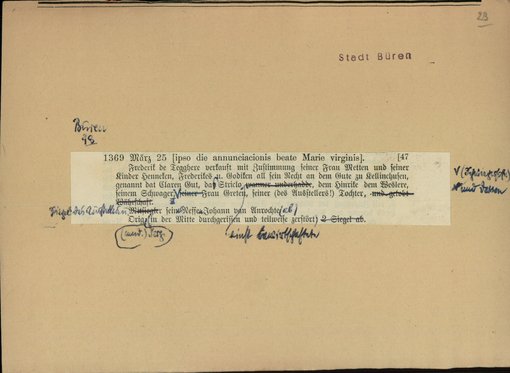 23
Stadt Büren
Büren
1369 März 25 [ipso die annunciacionis beate Marie virginis]. [47
Frederik de Tegghere verkauft mit Zustimmung seiner Frau Metten und seiner
Kinder Henneken, Frederikes u. Godiken all sein Recht an dem Gute zu Kellinchusen,
genannt dat Claren Gut, dat Striclo wanner underhadde, dem Hinrike dem Weslere,
seinem Schwager, seiner Frau Greten, seiner (des Ausstellers!) Tochter, und
und dessen
Siegel des Ausstellers seines Neffen Johann van Anrochte (ab)
Orig. in der Mitte durchgerissen und teilweise zerstört) 2 Siegel ab.
(nied.) Orig
einst bewirtschaftete